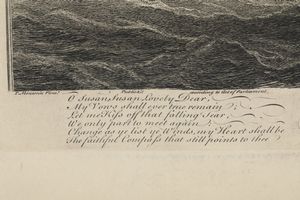 T. Pinxt. Publish'd According to Act of Parliament
O Susan Susan Lovely Dear,
My Vows shall ever true remain
Let me Kiss off that falling Tear,
We only part to meet again
Change as ye list ye Winds, my Heart shall be
The faithful Compass that still points to thee